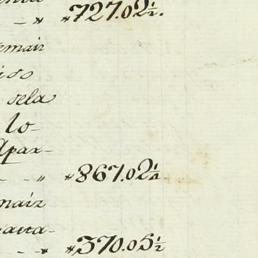 - „ 727.02½.
emair
iso
sela
lo-
Apar-
- - „ 867.02½
mair
- „ 370.05½